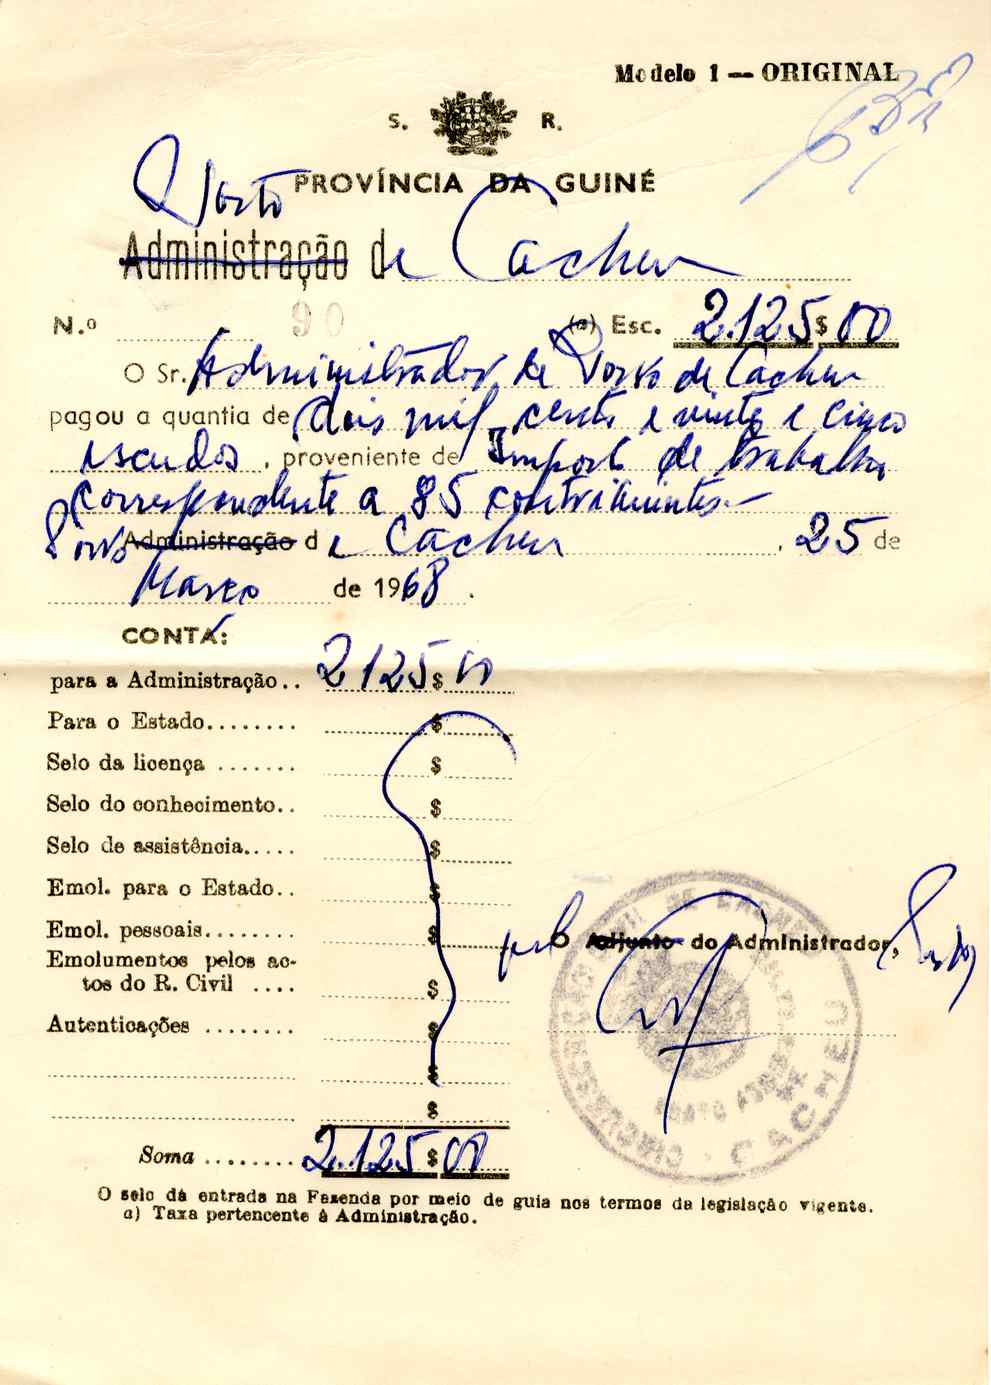 Modelo 1 — ORIGINAL
S. R.
PROVÍNCIA DA GUINÉ
Posto
Administração de Cacheu
N.º 90 (a) Esc. 2.125$00
O Sr. Administrador de Posto de Cacheu
pagou a quantia de dois mil, cento e vinte e cinco
escudos, proveniente de import. de trabalho
correspondente a 85 contribuintes.—
Posto Administração de Cacheu, 25 de
Março de 1968.
CONTA:
para a Administração.. 2125$00
Para o Estado........ $
Selo da licença ....... $
Selo do conhecimento.. $
Selo de assistência..... $
Emol. para o Estado.. $
Emol. pessoais........ $
Emolumentos pelos ac-
tos do R. Civil .... $
Autenticações ........ $
$
$
Soma ........ 2.125$00
pel O Adjunto do Administrador,
CIRCUNSCRIÇÃO CIVIL DE CACHEU
CACHEU
O selo dá entrada na Fazenda por meio de guia nos termos da legislação vigente.
a) Taxa pertencente à Administração.